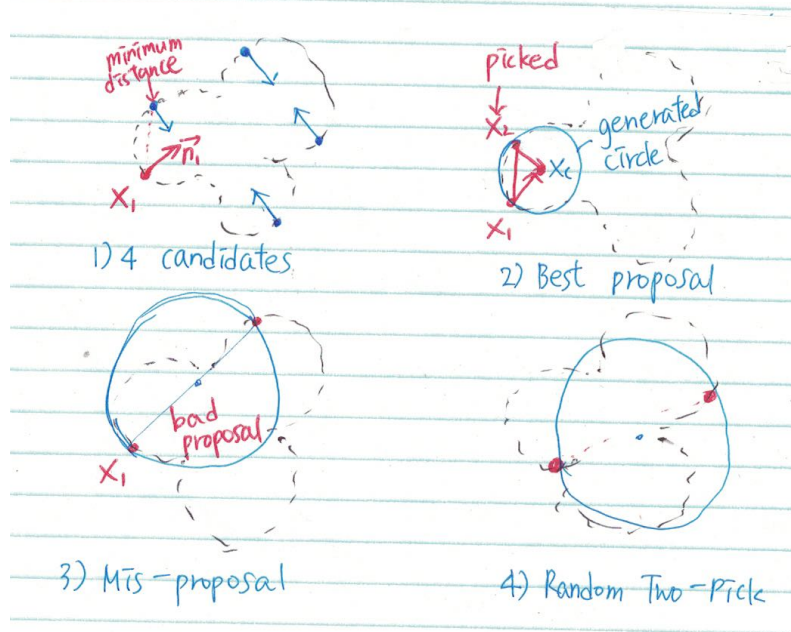 minimum
distance
n₁
X₁
1) 4 candidates
picked
X₂
generated
circle
Xc
X₁
2) Best proposal
bad
proposal
X₁
3) Mis-proposal
4) Random Two-Pick